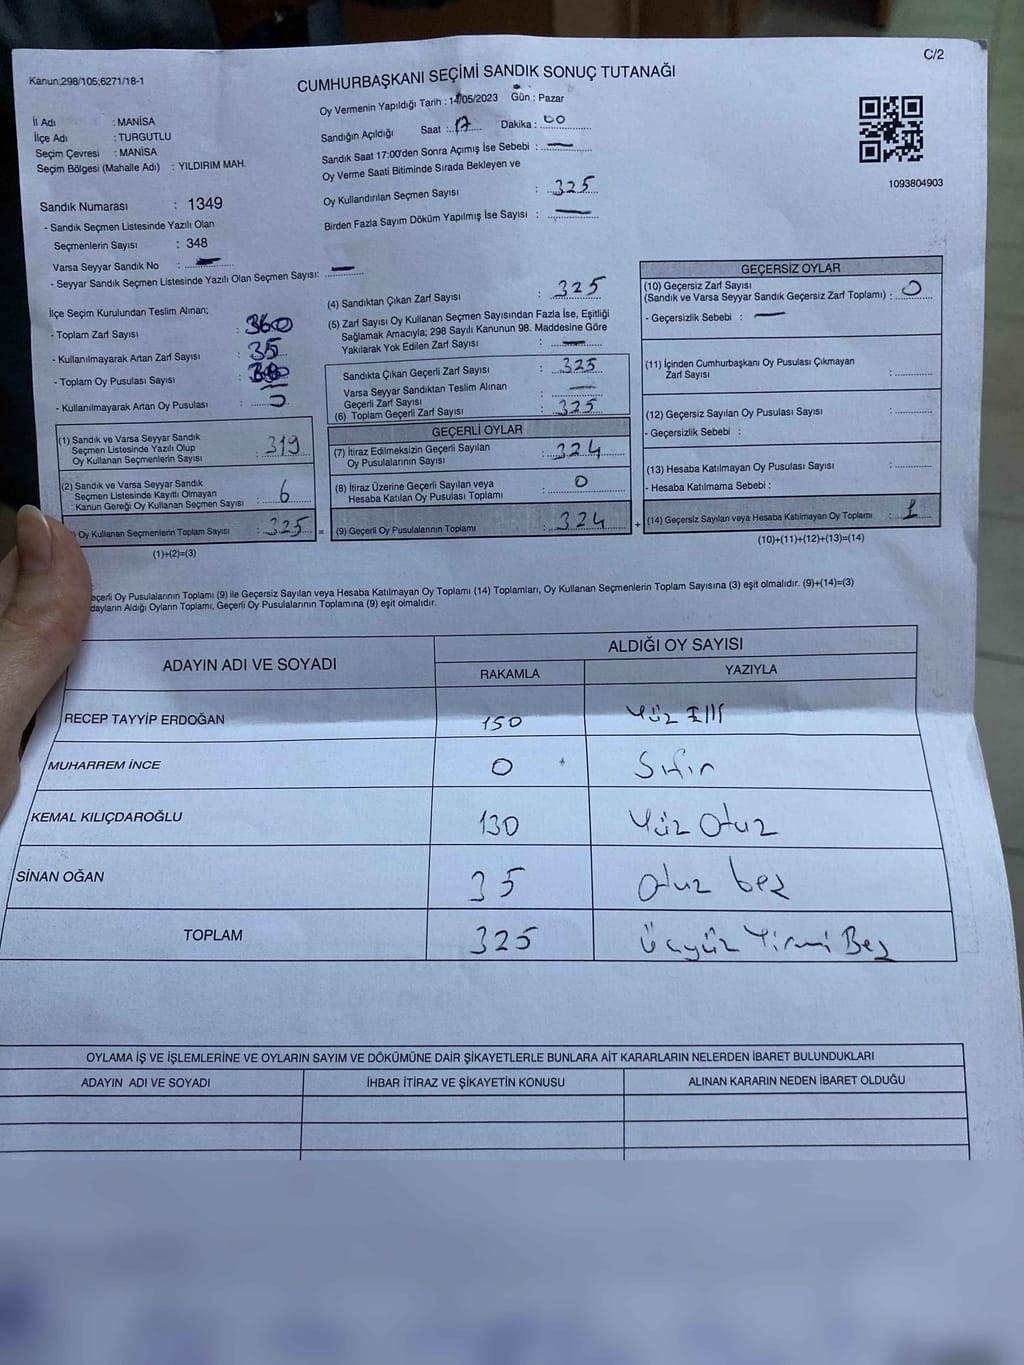 C/2
Kanun;298/105;6271/18-1
CUMHURBAŞKANI SEÇİMİ SANDIK SONUÇ TUTANAĞI
İl Adı : MANİSA
İlçe Adı : TURGUTLU
Seçim Çevresi : MANİSA
Seçim Bölgesi (Mahalle Adı) : YILDIRIM MAH.
Sandık Numarası : 1349
- Sandık Seçmen Listesinde Yazılı Olan
Seçmenlerin Sayısı : 348
Varsa Seyyar Sandık No : —
- Seyyar Sandık Seçmen Listesinde Yazılı Olan Seçmen Sayısı: —
Oy Vermenin Yapıldığı Tarih : 14/05/2023 Gün : Pazar
Sandığın Açıldığı Saat : 17 Dakika : 00
Sandık Saat 17:00'den Sonra Açımış İse Sebebi : —
Oy Verme Saati Bitiminde Sırada Bekleyen ve
Oy Kullandırılan Seçmen Sayısı : 325
Birden Fazla Sayım Döküm Yapılmış İse Sayısı : —
1093804903
İlçe Seçim Kurulundan Teslim Alınan;
- Toplam Zarf Sayısı : 360
- Kullanılmayarak Artan Zarf Sayısı : 35
- Toplam Oy Pusulası Sayısı :
- Kullanılmayarak Artan Oy Pusulası :
(1) Sandık ve Varsa Seyyar Sandık
Seçmen Listesinde Yazılı Olup
Oy Kullanan Seçmenlerin Sayısı : 319
(2) Sandık ve Varsa Seyyar Sandık
Seçmen Listesinde Kayıtlı Olmayan
Kanun Gereği Oy Kullanan Seçmen Sayısı : 6
Oy Kullanan Seçmenlerin Toplam Sayısı : 325 =
(1)+(2)=(3)
(4) Sandıktan Çıkan Zarf Sayısı : 325
(5) Zarf Sayısı Oy Kullanan Seçmen Sayısından Fazla İse, Eşitliği
Sağlamak Amacıyla; 298 Sayılı Kanunun 98. Maddesine Göre
Yakılarak Yok Edilen Zarf Sayısı : —
Sandıkta Çıkan Geçerli Zarf Sayısı : 325
Varsa Seyyar Sandıktan Teslim Alınan
Geçerli Zarf Sayısı : —
(6) Toplam Geçerli Zarf Sayısı : 325
GEÇERLİ OYLAR
(7) İtiraz Edilmeksizin Geçerli Sayılan
Oy Pusulalarının Sayısı : 324
(8) İtiraz Üzerine Geçerli Sayılan veya
Hesaba Katılan Oy Pusulası Toplamı : 0
(9) Geçerli Oy Pusulalarının Toplamı : 324 +
GEÇERSİZ OYLAR
(10) Geçersiz Zarf Sayısı
(Sandık ve Varsa Seyyar Sandık Geçersiz Zarf Toplamı) : 0
- Geçersizlik Sebebi : —
(11) İçinden Cumhurbaşkanı Oy Pusulası Çıkmayan
Zarf Sayısı :
(12) Geçersiz Sayılan Oy Pusulası Sayısı :
- Geçersizlik Sebebi :
(13) Hesaba Katılmayan Oy Pusulası Sayısı :
- Hesaba Katılmama Sebebi :
(14) Geçersiz Sayılan veya Hesaba Katılmayan Oy Toplamı : 1
(10)+(11)+(12)+(13)=(14)
eçerli Oy Pusulalarının Toplamı (9) ile Geçersiz Sayılan veya Hesaba Katılmayan Oy Toplamı (14) Toplamları, Oy Kullanan Seçmenlerin Toplam Sayısına (3) eşit olmalıdır. (9)+(14)=(3)
dayların Aldığı Oyların Toplamı, Geçerli Oy Pusulalarının Toplamına (9) eşit olmalıdır.
ADAYIN ADI VE SOYADI ALDIĞI OY SAYISI
RAKAMLA YAZIYLA
RECEP TAYYİP ERDOĞAN 150 Yüz Elli
MUHARREM İNCE 0 Sıfır
KEMAL KILIÇDAROĞLU 130 Yüz Otuz
SİNAN OĞAN 35 Otuz beş
TOPLAM 325 Üçyüz Yirmi Beş
OYLAMA İŞ VE İŞLEMLERİNE VE OYLARIN SAYIM VE DÖKÜMÜNE DAİR ŞİKAYETLERLE BUNLARA AİT KARARLARIN NELERDEN İBARET BULUNDUKLARI
ADAYIN ADI VE SOYADI İHBAR İTİRAZ VE ŞİKAYETİN KONUSU ALINAN KARARIN NEDEN İBARET OLDUĞU